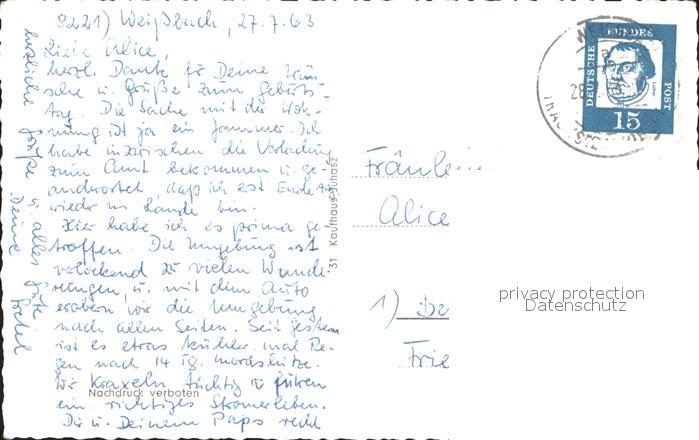 8221) Weißbach, 27.7.63
Liebe Alice,
herzl. Dank für Deine Wün-
sche u. Grüße zum Geburts-
tag. Die Sache mit der Woh-
nung ist ja ein Jammer. Ich
habe inzwischen die Vorladung
zum Amt bekommen u. ge-
andwortet, daß ich erst Ende Au
wieder im Lande bin.
Hier habe ich es prima ge-
troffen. Die Umgebung ist
verlockend zu vielen Wande-
rungen, u. mit dem Auto
erobern wir die Umgebung
nach allen Seiten. Seit gestern
ist es etwas kühler mal Re-
gen nach 14 Tg. mordshitze.
Wir Kraxeln tüchtig u führen
ein richtiges Stromerleben.
Dir u. Deinem Paps recht
herzliche Grüße u. alles Gute
Deine
Nachdruck verboten
31 Kaufhaus Juhasz
Fräulein
Alice
1)
Frie
DEUTSCHE BUNDES POST
15
28
privacy protection
Datenschutz